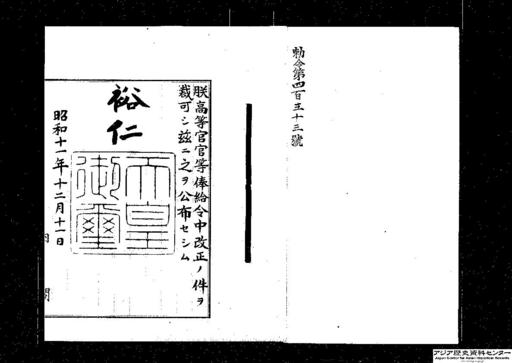 勅令第四百五十三號
朕高等官官等俸給令中改正ノ件ヲ
裁可シ茲ニ之ヲ公布セシム
裕仁
天皇
御璽
昭和十一年十二月十一日
内閣
アジア歴史資料センター
Japan Center for Asian Historical Records